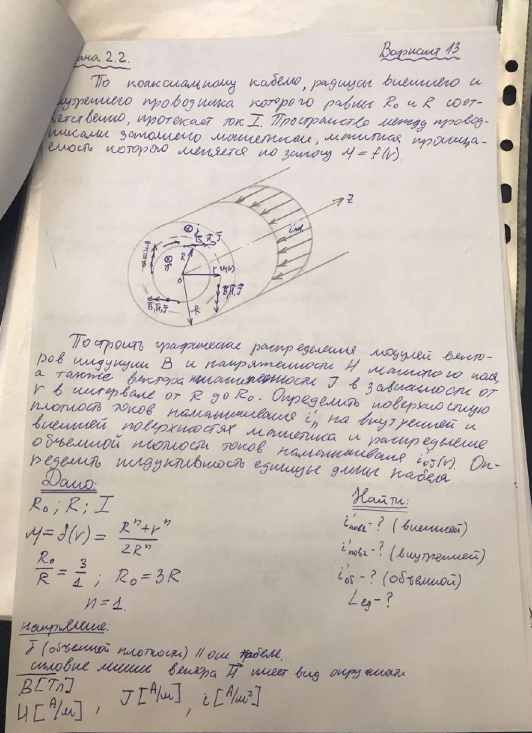 ана 2.2.
Вариант 13
По коаксиальному кабелю, радиусы внешнего и
внутреннего проводника которого равны R₀ и R соот-
ветственно, протекает ток I. Пространство между провод-
никами заполнено магнетиком, магнитная проница-
емость которого меняется по закону μ = f(r).
Z
R
0
B, H, J
R
Построить графически распределения модулей векто-
ров индукции B и напряженности H магнитного поля,
а также вектора намагниченности J в зависимости от
r в интервале от R до R₀. Определить поверхностную
плотность токов намагничивания i'п на внутренней и
внешней поверхностях магнетика и распределение
объемной плотности токов намагничивания i'об(r). Оп-
ределить индуктивность единицы длины кабеля
Дано:
R₀; R; I
μ = f(r) = (Rⁿ + rⁿ) / 2Rⁿ
R₀/R = 3/1; R₀ = 3R
n = 1.
Найти:
i'пов1 - ? (внешней)
i'пов2 - ? (внутренней)
i'об - ? (объемной)
Lед - ?
направление:
(объемной плотности) || оси кабеля.
силовые линии вектора H имеет вид окружн
B [Тл]
H [А/м], J [А/м], i [А/м²]